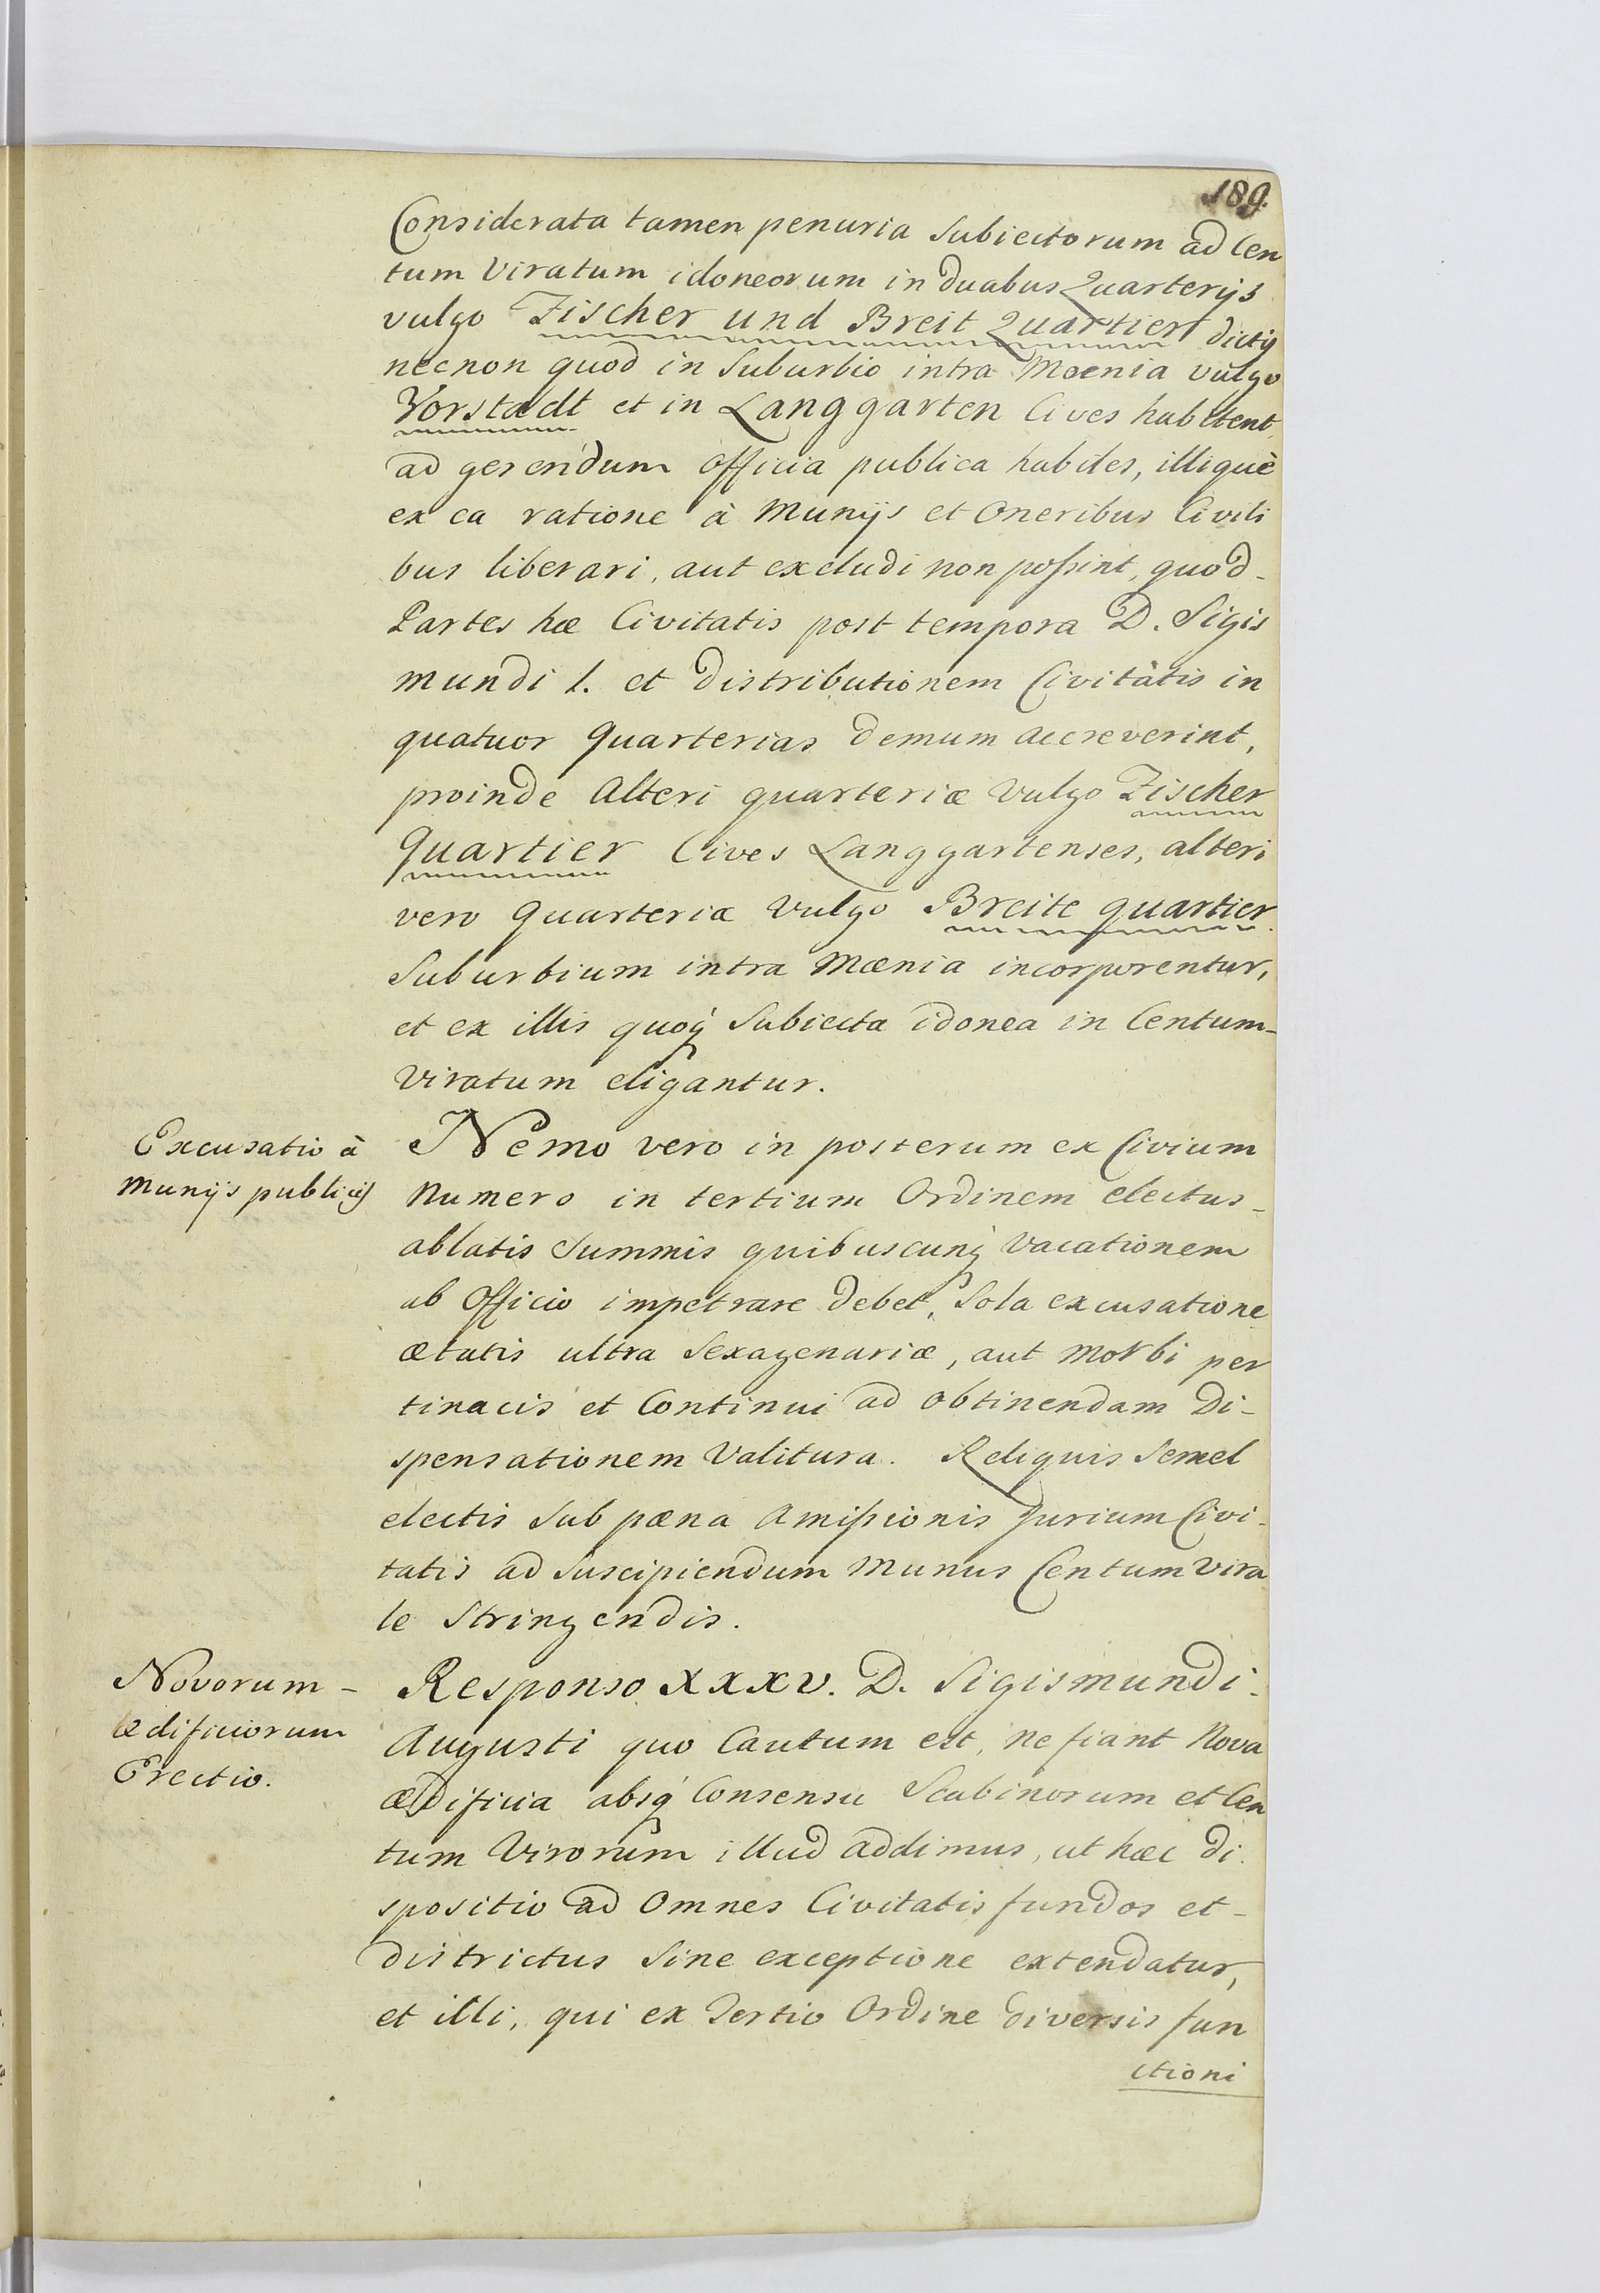 189.
Considerata tamen penuria Subiectorum ad Cen
tum Viratum idoneorum in duabus Quarterijs
vulgo Fischer und Breit Quartier dictis
necnon quod in Suburbio intra Mœnia vulgo
Vorstadt et in Langgarten Cives habitent,
ad gerendum Officia publica habiles, illiquè
ex ea ratione à Munijs et Oneribus Civili
bus liberari, aut excludi non poſsint, quod-
Partes hæ Civitatis post tempora D. Sigis
mundi 1. et distributionem Civitatis in
quatuor Quarterias demum accreverint,
proinde Alteri quarteriæ Vulgo Fischer
Quartier Cives Langgartenses, alteri
vero Quarteriæ Vulgo Breite quartier
Suburbium intra Mœnia incorporentur,
et ex illis quoq Subiecta idonea in Centum-
Viratum eligantur.
Excusatio à
Munijs publicis
Nemo vero in posterum ex Civium
Numero in tertium Ordinem electus-
ablatis Summis quibuscunq Vacationem
ab Officio impetrare debet, Sola excusatione
ætatis ultra Sexagenariæ, aut Morbi per
tinacis et Continui ad obtinendam Di-
spensationem Valitura. Reliquis Semel
electis Sub pœna Amiſsionis Jurium Civi-
tatis ad Suscipiendum Munus Centumvira
le Stringendis.
Novorum-
ædificiorum
Erectio.
Responso XXXV. D. Sigismundi-
Augusti quo Cautum est, ne fiant Nova
ædificia absq Consensu Scabinorum et Cen
tum Virorum illud addimus, ut hæc di-
spositio ad Omnes Civitatis fundos et-
districtus Sine exceptione extendatur,
et illi, qui ex Tertio Ordine diversis fun
ctioni